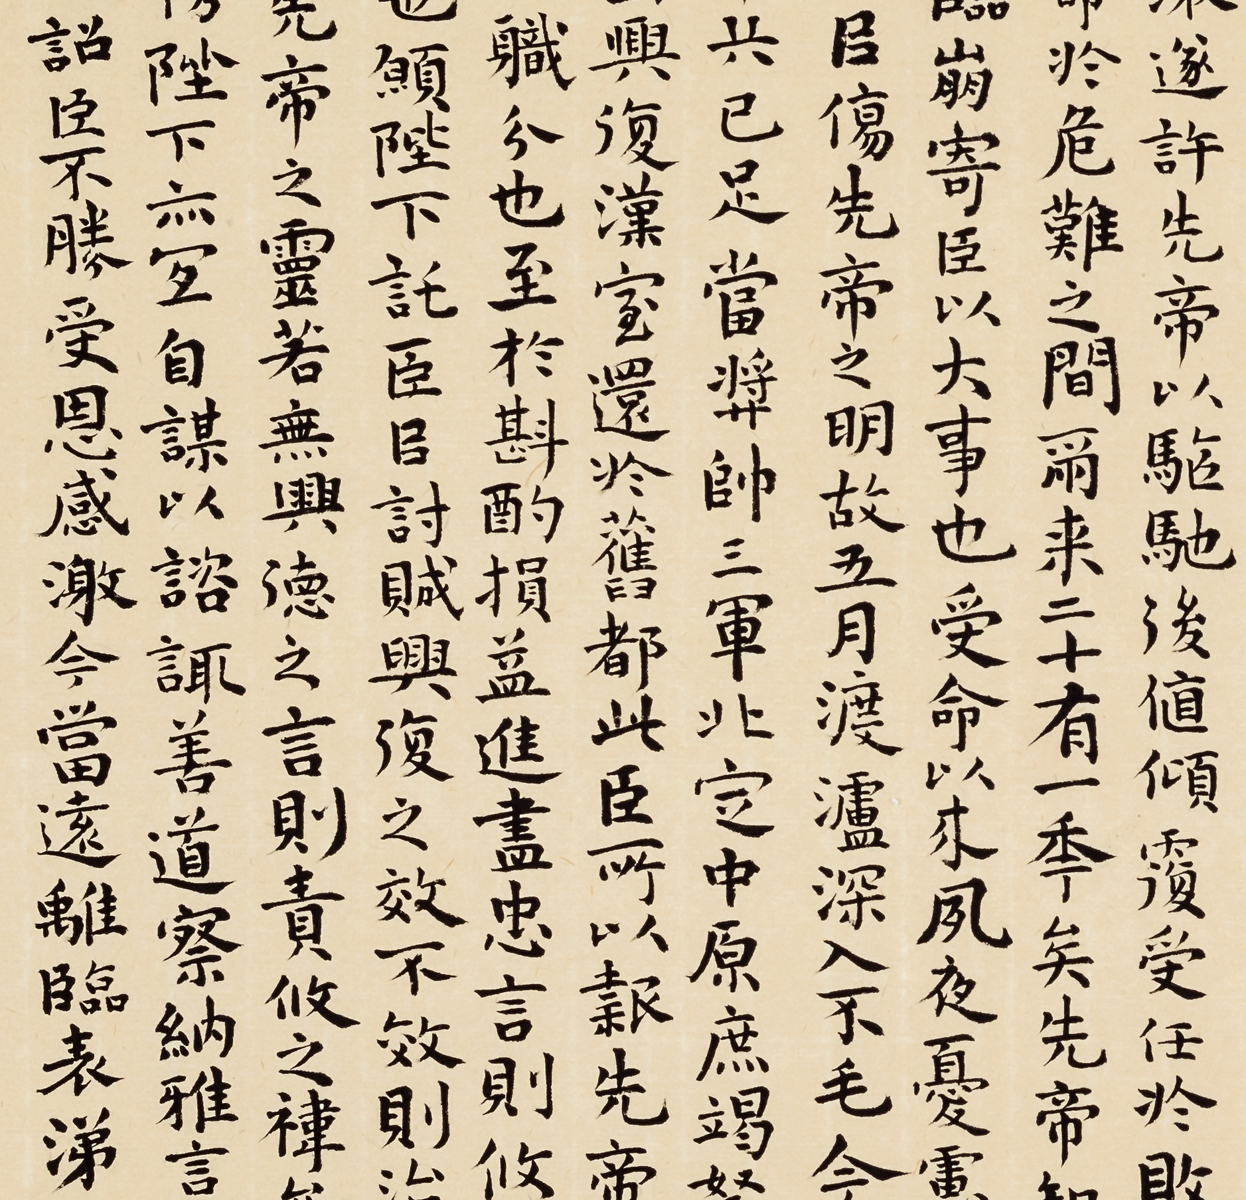 遂許先帝以駈馳後值傾覆受任於敗
命於危難之間爾来二十有一年矣先帝知
臨崩寄臣以大事也受命以来夙夜憂慮
臣傷先帝之明故五月渡瀘深入不毛今
兵已足當奨帥三軍北定中原庶竭駑
興復漢室還於舊都此臣所以報先帝
職分也至於斟酌損益進盡忠言則攸
也願陛下託臣臣討賊興復之效不效則治
先帝之靈若無興徳之言則責攸之禕
陛下亦宜自謀以諮諏善道察納雅言
詔臣不勝受恩感激今當遠離臨表涕